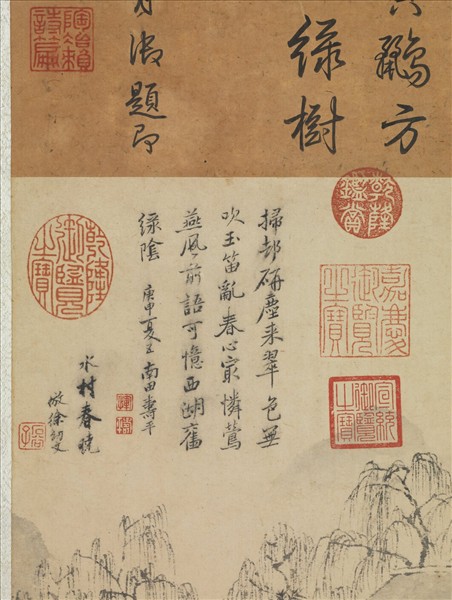 鸝方
綠樹
題
陶冶賴詩篇
乾隆鑑賞
嘉慶御覽之寶
宣統御覽之寶
掃却研塵来翠色無
吹玉笛亂春心最憐鶯
燕風前語可憶西湖舊
綠陰 庚申夏五南田壽平
乾隆御覽之寶
水村春曉
倣徐幼文